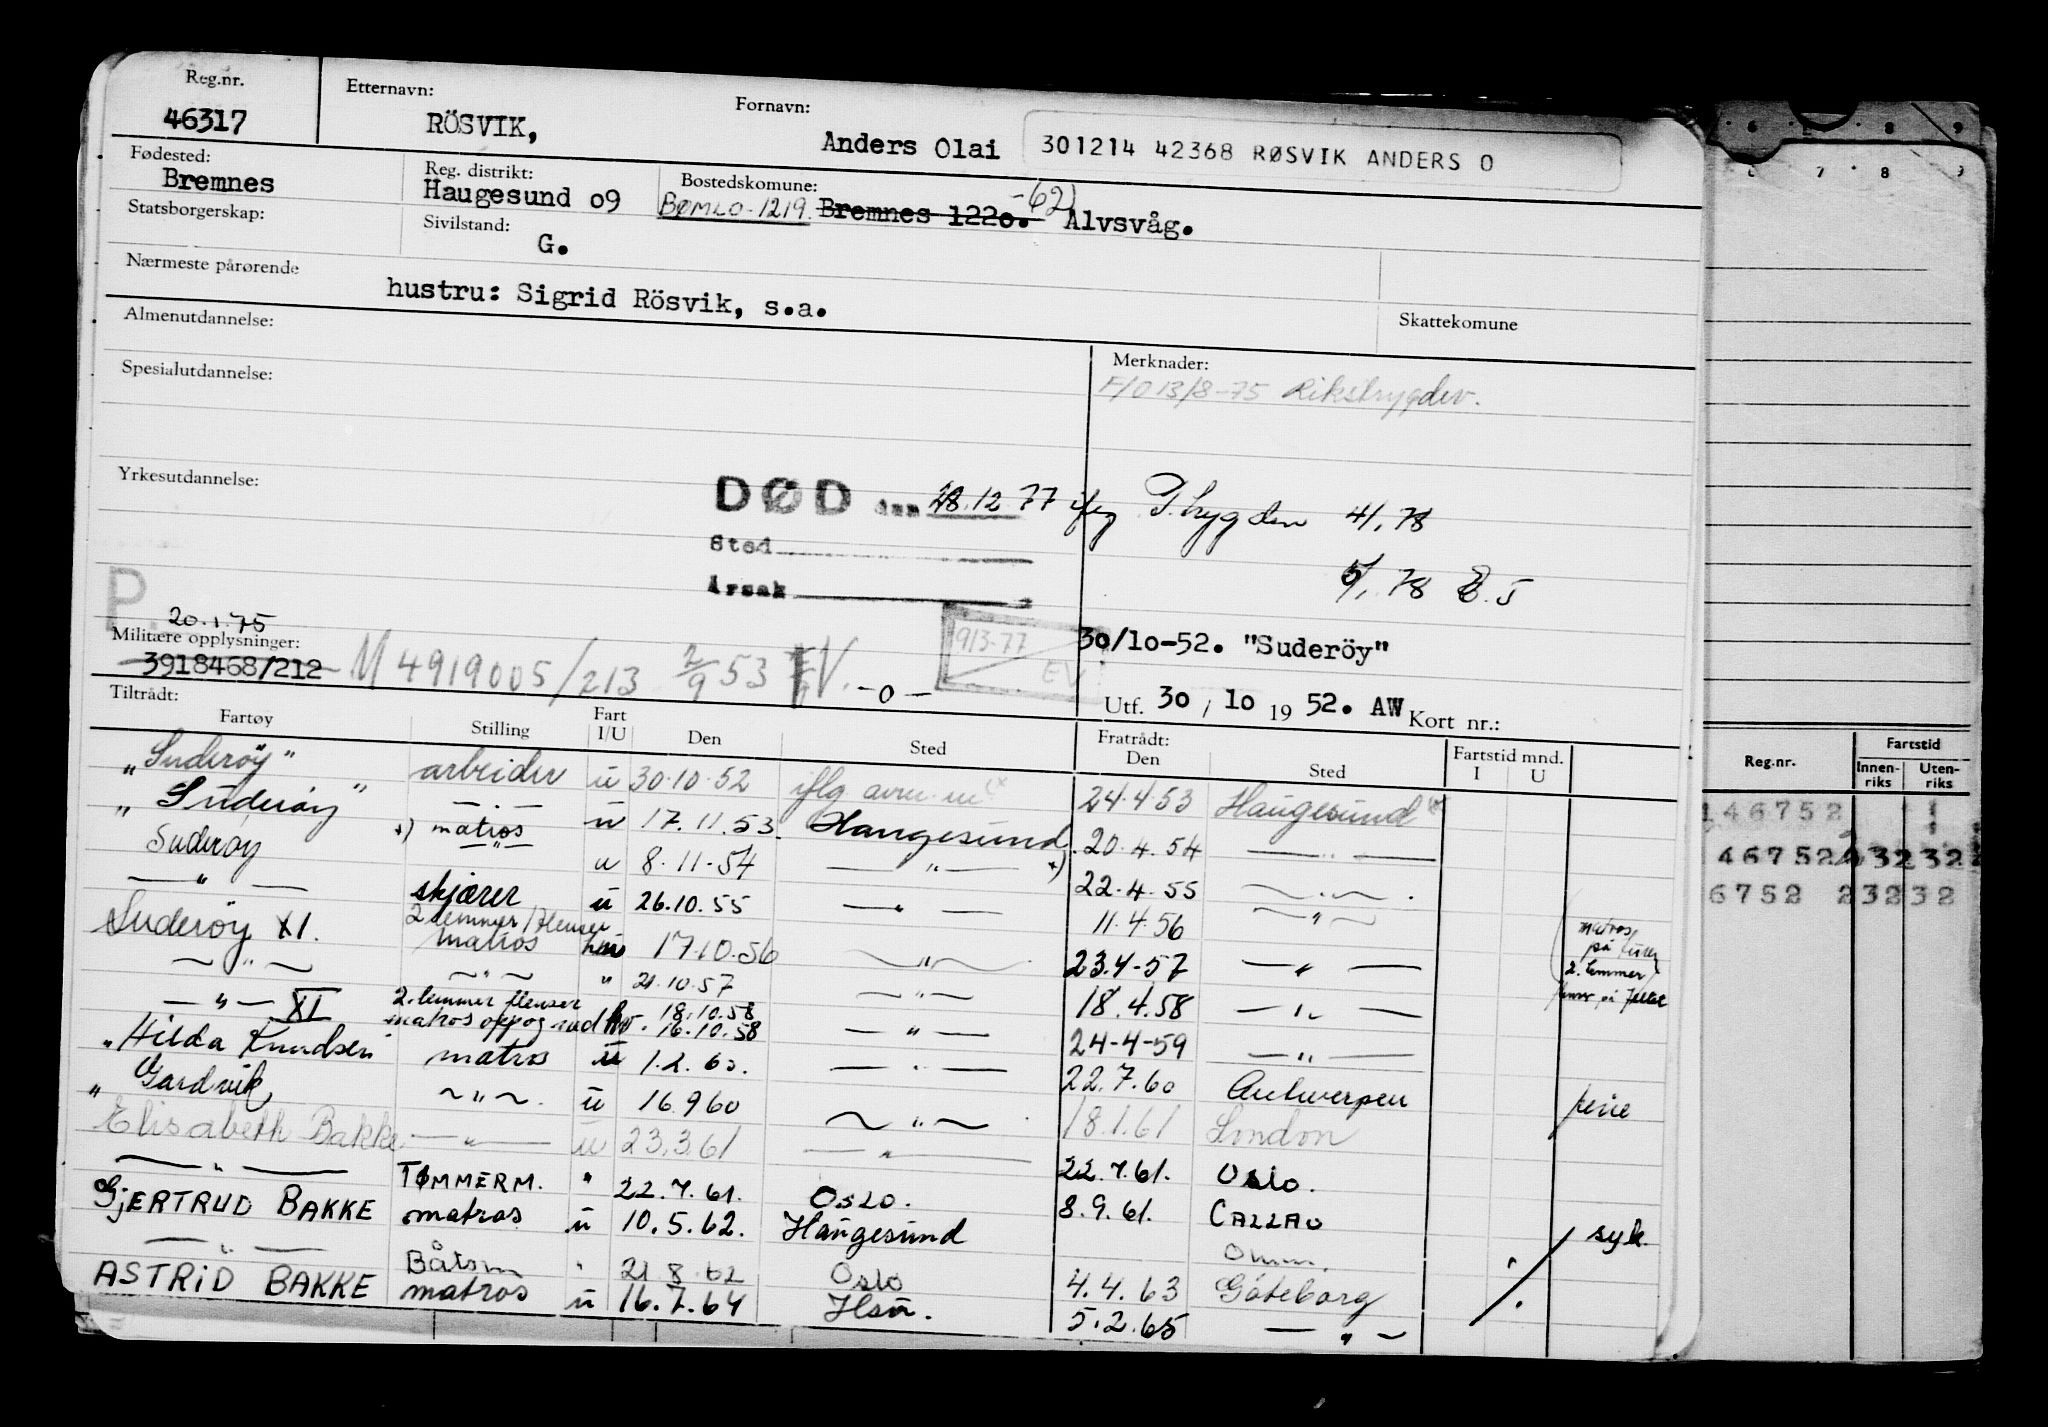 Reg.nr. Etternavn: Fornavn:
46317 RÖSVIK, Anders Olai 301214 42368 RØSVIK ANDERS O
Fødested: Reg. distrikt: Bostedskomune:
Bremnes Haugesund o9 BØMLO-1219. Bremnes 122o. -62) Alvsvåg.
Statsborgerskap: Sivilstand:
G.
Nærmeste pårørende
hustru: Sigrid Rösvik, s.a.
Almenutdannelse: Skattekomune
Spesialutdannelse: Merknader:
F/O 13/8-75 Rikstrygdev.
Yrkesutdannelse:
DØD den 28.12.77 iflg T.trygden 4/1.78
Sted
Årsak 5/1.78
P.
20.1.75
Militære opplysninger: 9/3-77 30/10-52. "Suderöy"
3918468/212 M 4919005/213 2/9 53 -o- EV
Utf. 30 / 10 19 52. AW Kort nr.:
Tiltrådt: Fratrådt: Fartstid mnd.
Fartøy Stilling Fart I/U Den Sted Den Sted I U
"Suderöy" arbeider u 30.10.52 iflg 24.4.53 Haugesund
" Suderöy" — . — u 17.11.53. Haugesund. 20.4.54 — " —
Suderøy *) matros u 8.11-54 — " — *) 22.4.55 — " —
— " — skjærer u 26.10.55 — " — 11.4.56 — " —
Suderöy XI. 2 lemmer/flenser matros 17.10.56 — " — 23.4-57 — " — matros på
— " — — " — " 21.10.57 — " — 18.4.58 — " — 2. lemmer
— " — XI 2. lemmer flenser 18.10.58
matros 16.10.58 — " — 24-4-59 — " —
"Hilda Knudsen" matros u 1.2.60. — " — 22.7.60 Antwerpen ferie
" Gardvik — " — u 16.9.60 — " — 18.1.61 London
Elisabeth Bakke — " — u 23.3.61 — " — 22.7.61. Oslo.
— " — TØMMERM. " 22.7.61. OSLO. 8.9.61. CALLAO syk.
GJERTRUD BAKKE matros u 10.5.62. Haugesund Omm.
— " — Båtsm " 21.8.62 Oslo 4.4.63 Göteborg
ASTRID BAKKE matros u 16.7.64 Hsu. 5.2.65 — " —
6 8 9
7 8 9
Reg.nr. Fartstid
Innenriks Utenriks
146752
46752
6752 23232